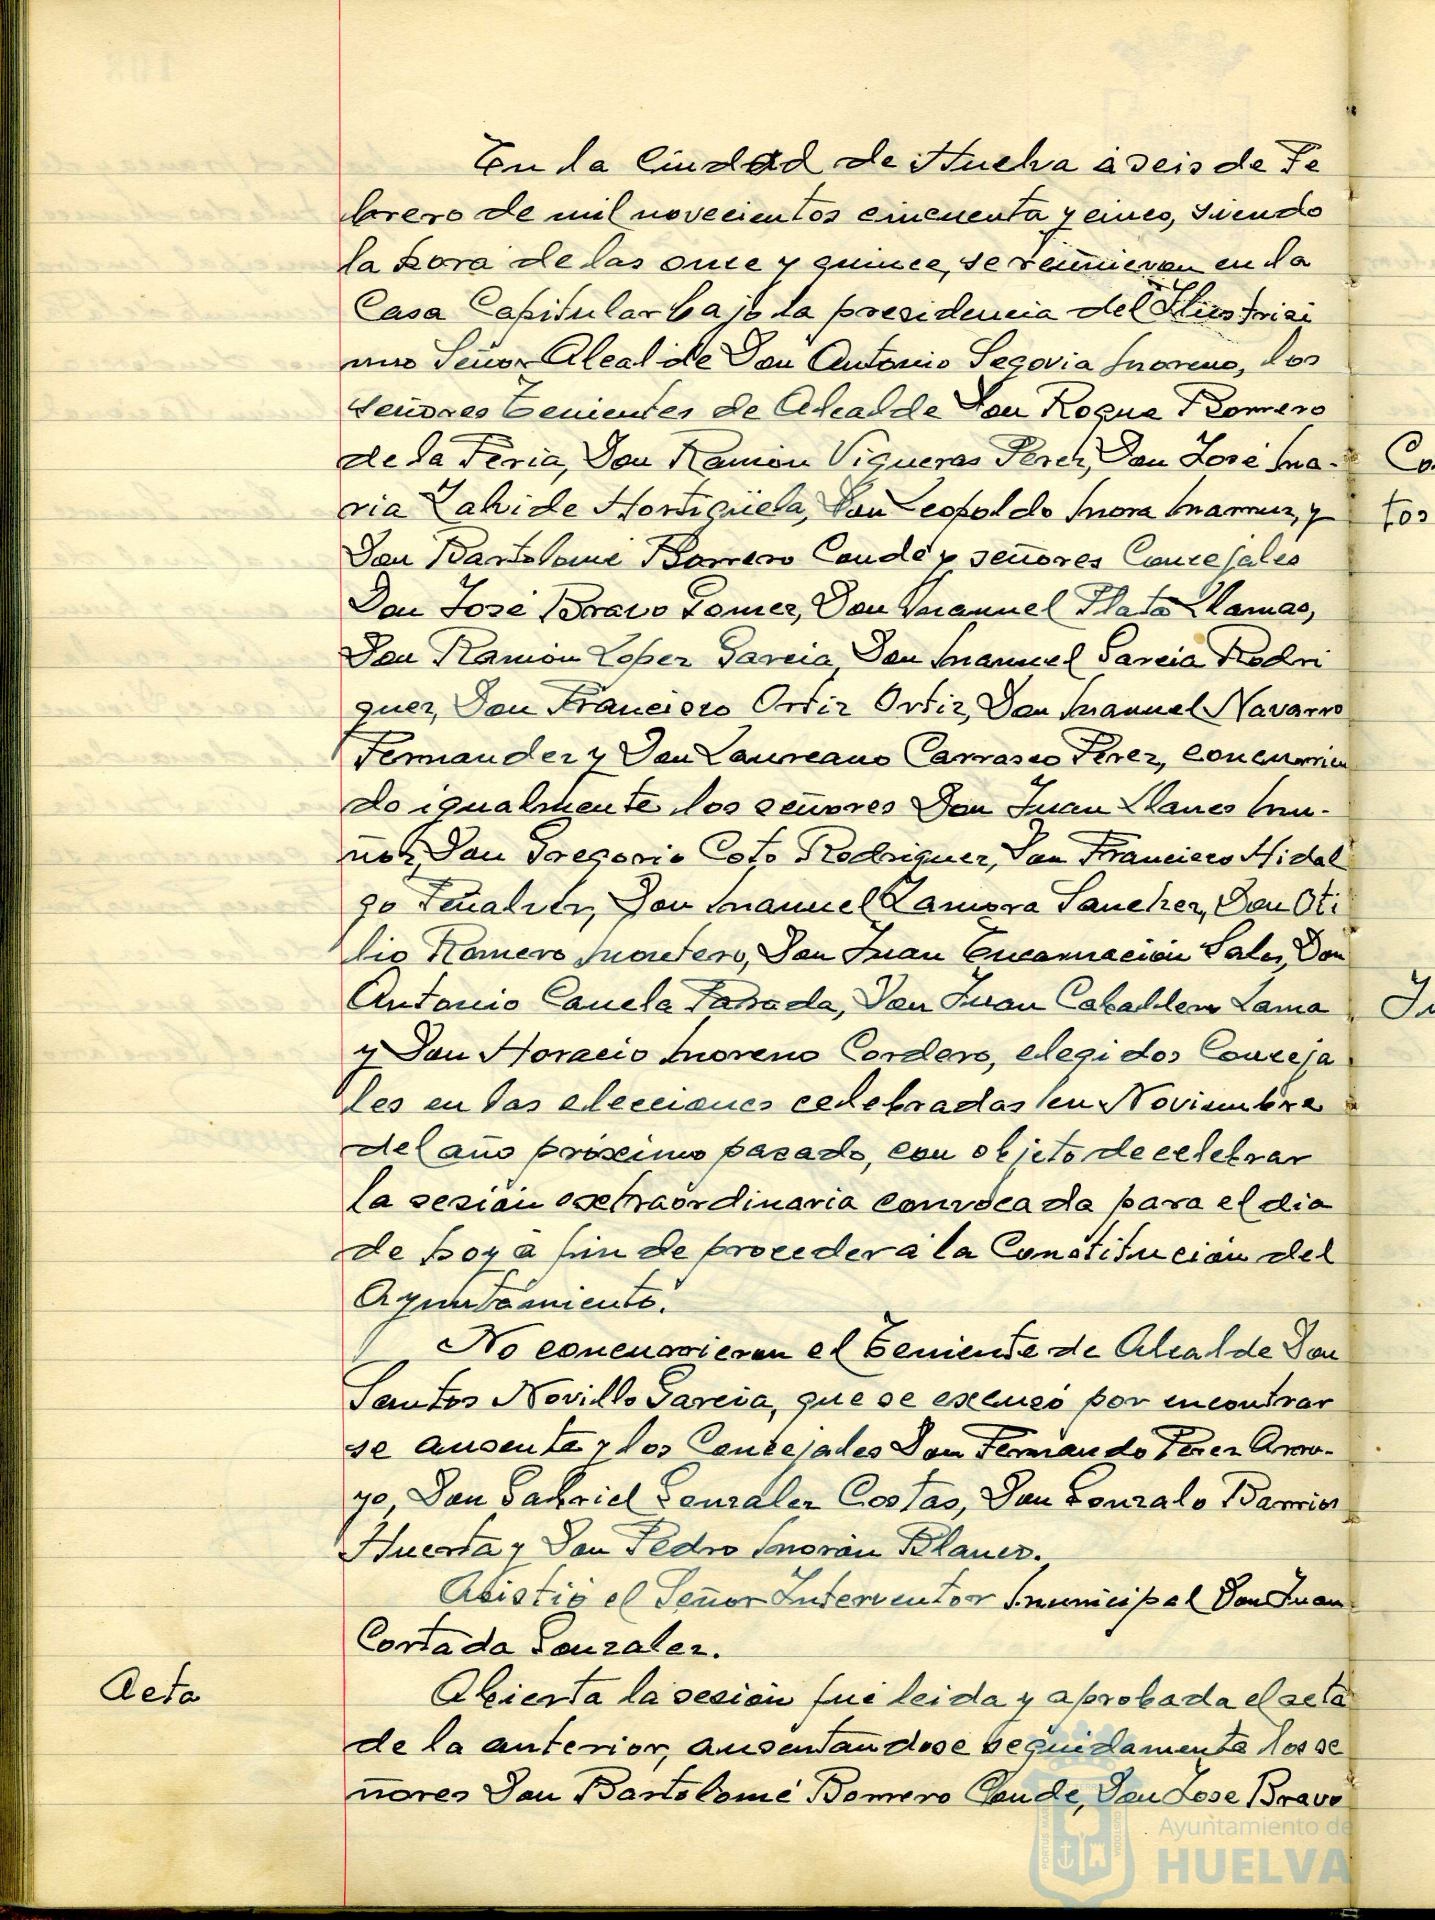 En la Ciudad de Huelva á seis de Fe
brero de mil novecientos cincuenta y cinco, siendo
la hora de las once y quince, se reunieron en la
Casa Capitular bajo la presidencia del Ilustrisi
mo Señor Alcalde Don Antonio Segovia Moreno, los
señores Tenientes de Alcalde Don Roque Romero
de la Feria, Don Ramón Vigueras Pérez, Don José Ma-
ria Zalvide Hortigüela, Don Leopoldo Mora y
Don Bartolomé Borrero Conde y señores Concejales
Don José Bravo Gomez, Don Manuel Plata Llamas,
Don Ramón Lopez Garcia, Don Manuel Garcia Rodri
guez, Don Francisco Ortiz Ortiz, Don Manuel Navarro
Fernandez y Don Laureano Carrasco Pérez, concurrien
do igualmente los señores Don Juan Llanes Mu-
ñoz, Don Gregorio Coto Rodriguez, Don Francisco Hidal
go Peñalver, Don Manuel Zamora Sanchez, Don Oti
lio Romero Montero, Don Juan Encarnación Salas, Don
Antonio Canela Parada, Don Juan Caballero Lama
y Don Horacio Moreno Cordero, elegidos Conceja
les en las elecciones celebradas en Noviembre
del año próximo pasado, con objeto de celebrar
la sesión extraordinaria convocada para el dia
de hoy á fin de proceder á la Constitución del
Ayuntamiento.
No concurrieron el Teniente de Alcalde Don
Santos Novillo Garcia, que se excusó por encontrar
se ausente y los Concejales Don Fernando Perez Arro-
yo, Don Gabriel Gonzalez Costas, Don Gonzalo Barrios
Huerta y Don Pedro Morán Blanco.
Asistió el Señor Interventor Municipal Don Juan
Cortada Gonzalez.
Acta
Abierta la sesión fué leida y aprobada el acta
de la anterior, ausentandose seguidamente los se
ñores Don Bartolomé Borrero Conde, Don Jose Bravo
Ayuntamiento de
HUELVA
Co
tos